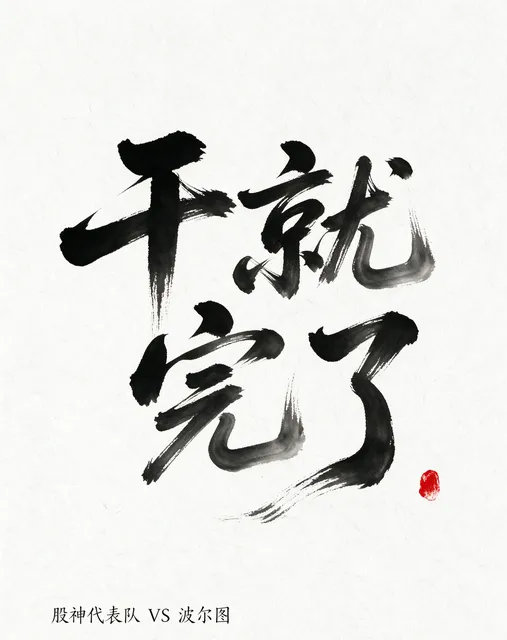 干就
完了
股神代表队 VS 波尔图